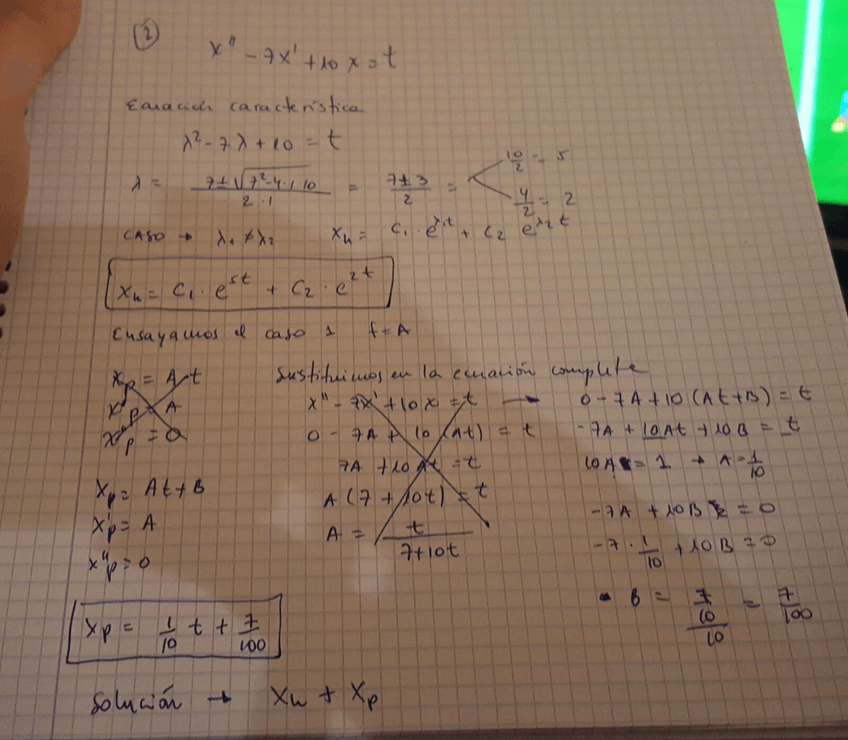 2
x'' - 7x' + 10x = t
Ecuación característica
λ² - 7λ + 10 = t
λ = (7 ± √(7² - 4·1·10)) / (2·1) = (7 ± 3)/2 = 10/2 = 5
4/2 = 2
CASO → λ₁ ≠ λ₂ xₕ = C₁·e^(λ₁t) + C₂ e^(λ₂t)
xₕ = C₁·e^(5t) + C₂·e^(2t)
Ensayamos el caso 1 f = A
xp = A·t
x'p = A
x''p = 0
xp = At + B
x'p = A
x''p = 0
Sustituimos en la ecuación complete
x'' - 7x' + 10x = t →
0 - 7A + 10(At) = t
7A + 10At = t
A(7 + 10t) = t
A = t/(7 + 10t)
0 - 7A + 10(At + B) = t
-7A + 10At + 10B = t
10A = 1 → A = 1/10
-7A + 10B = 0
-7·1/10 + 10B = 0
B = (7/10)/10 = 7/100
xp = 1/10 t + 7/100
Solución → xₕ + xp